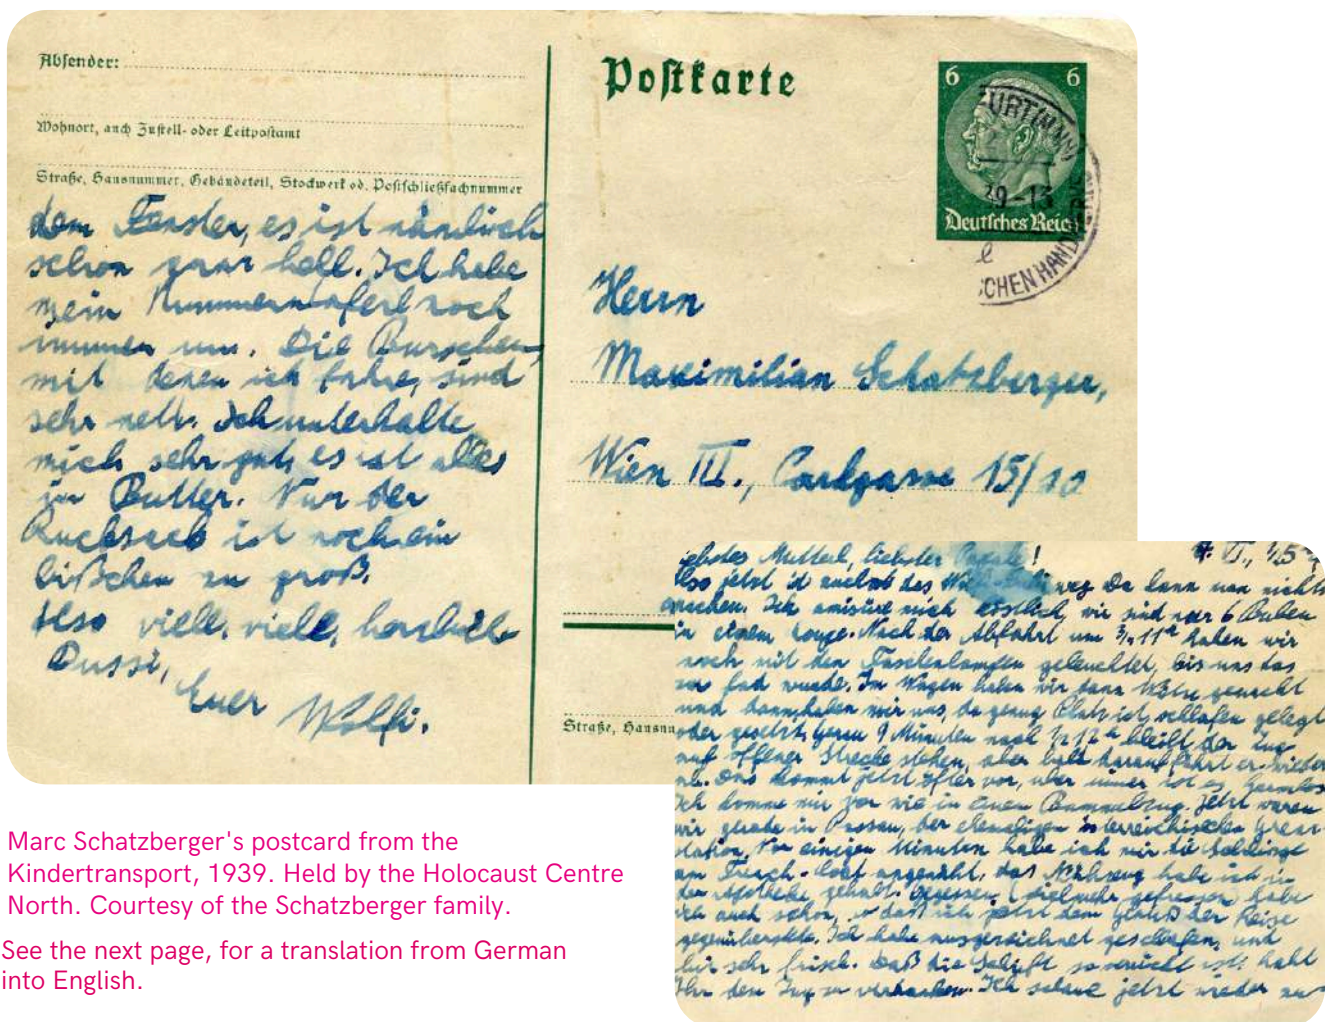 Absender:
Wohnort, auch Zustell- oder Leitpostamt
Straße, Hausnummer, Gebäudeteil, Stockwerk od. Postschließfachnummer
dem Fenster, es ist nämlich
schon ganz hell. Ich habe
mein Nummerntaferl noch
immer um. Die Burschen,
mit denen ich fahre, sind
sehr nett. Ich unterhalte
mich sehr gut, es ist alles
in Butter. Nur der
Rucksack ist noch ein
bißchen zu groß.
Also viele, viele, herzliche
Bussi,
Euer Wolfi.
Postkarte
6 6
Deutsches Reich
29-13
Herrn
Maximilian Schatzberger,
Wien III., Carlgasse 15/10
Straße, Hausnu
liebstes Mutterl, liebster !
Also jetzt ist weg Da kann man nichts
machen. Ich amüsiere mich köstlich, wir sind nur 6 Buben
in einem . Nach der Abfahrt um 3/4 11h haben wir
noch mit den Taschenlampen geleuchtet, bis uns das
zu fad wurde. Im Wagen haben wir dann gemacht
und dann haben wir uns, da genug Platz ist, schlafen gelegt
oder gesetzt. Genau 9 Minuten nach 1/2 12h bleibt der Zug
auf offener Strecke stehen, aber bald darauf fährt er wieder
an. Das kommt jetzt öfter vor, aber immer ist es harmlos
Ich komme mir vor wie in einem Bummelzug. Jetzt waren
wir gerade in Passau, der ehemaligen österreichischen Grenz-
station. Vor einigen Minuten habe ich mir die
am angenäht, das Nähzeug habe ich in
der Apotheke gehabt. Gegessen (vielmehr gefressen) habe
ich auch schon, so daß ich jetzt dem der Reise
gegenüberstehe. Ich habe ausgezeichnet geschlafen, und
bin sehr frisch. Daß die Schrift so verrückt ist, habt
Ihr dem Zug zu verdanken. Ich schaue jetzt wieder aus
Marc Schatzberger's postcard from the
Kindertransport, 1939. Held by the Holocaust Centre
North. Courtesy of the Schatzberger family.
See the next page, for a translation from German
into English.